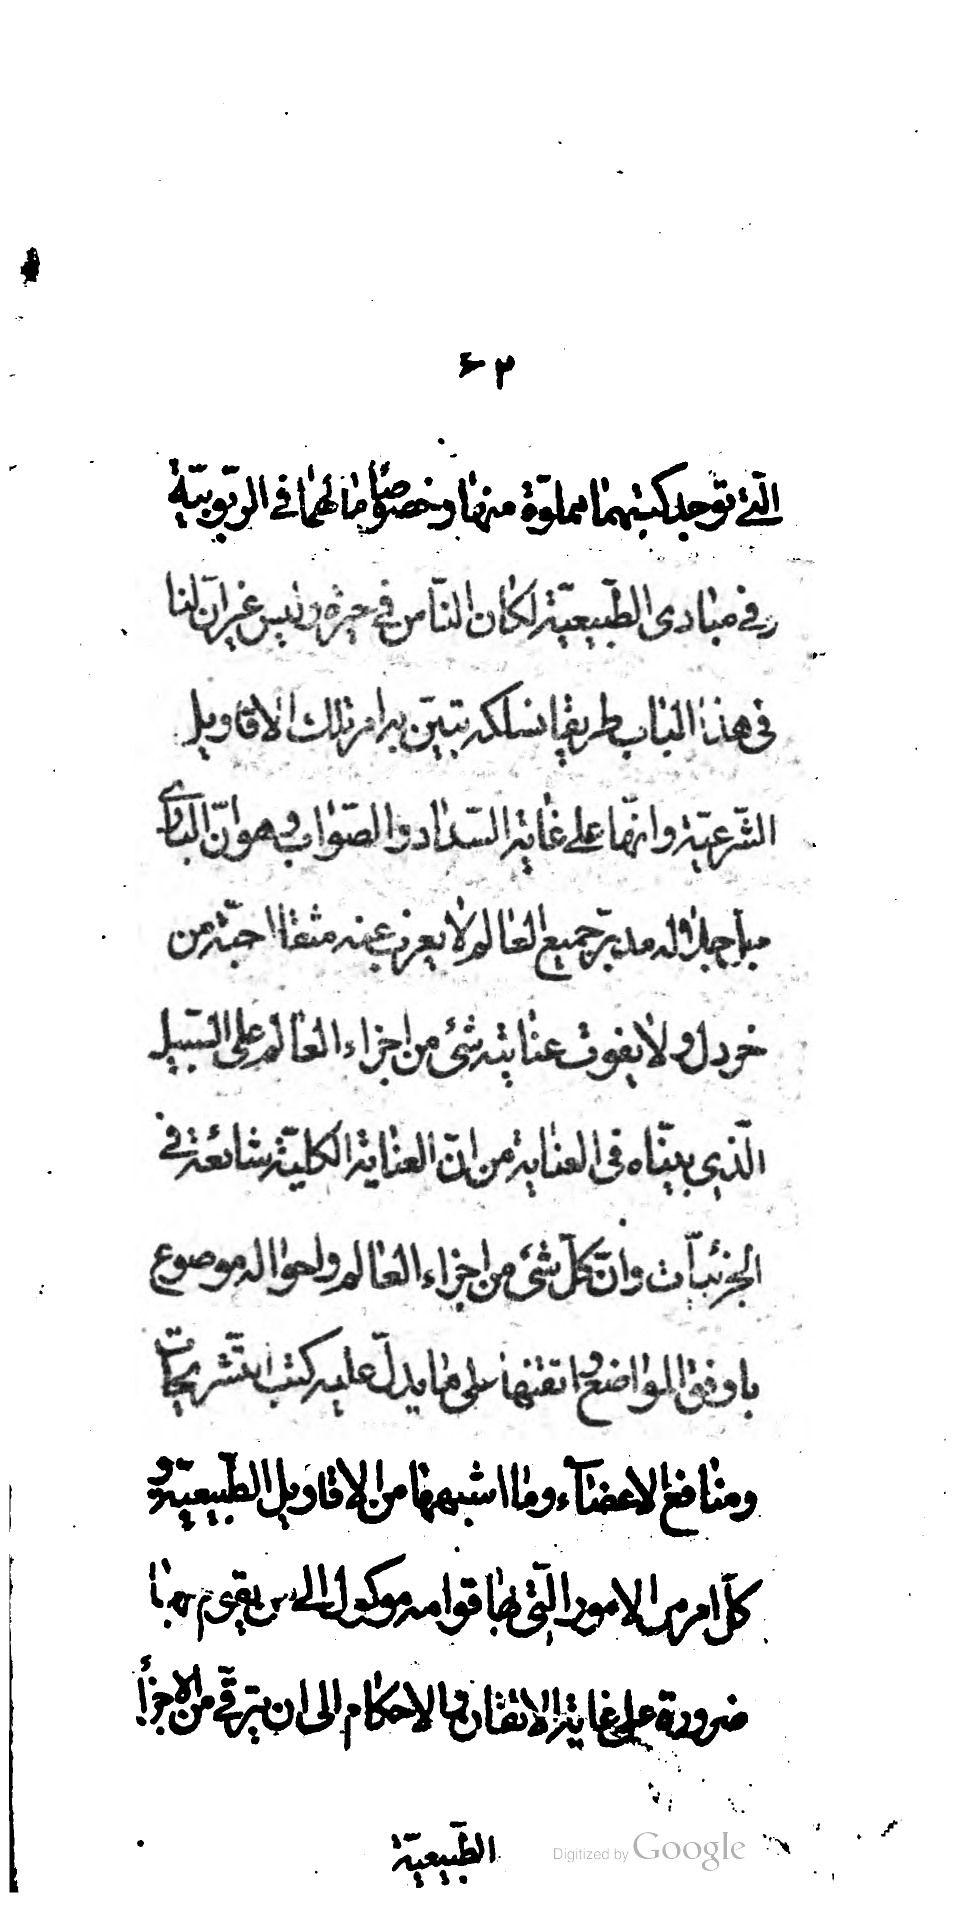 ۶۲
الّتي توجد كتبهما مملوّة منها وخصوصًا ما لهما في الربّوبيّة
وفي مبادى الطّبيعيّة لكان النّاس في حيرة ولبس غير انّ لنا
فى هذا الباب طريقا نسلكه يتبيّن به امر تلك الاقاويل
الشّرعيّة وانّها على غاية السّداد والصّواب وهو انّ البارى
جلّ جلاله مدبّر جميع العالم لا يعزب عنه مثقال حبّة من
خردل ولا يفوت عنايته شئ من اجزاء العالم على السّبيل
الّذى بيّنّاه فى العناية من انّ العناية الكليّة شائعة في
الجزئيّات وانّ كلّ شئ من اجزاء العالم واحواله موضوع
باوفق المواضع واتقنها على ما يدلّ عليه كتب التّشريحات
ومنافع الاعضآء وما اشبهها من الاقاويل الطّبيعيّة و
كلّ امر من الامور الّتى بها قوامه موكول الى من يقوم بها
ضرورة على غاية الاتقان والاحكام الى ان يترقّى من الاجزأ
الطّبيعيّة
Digitized by Google